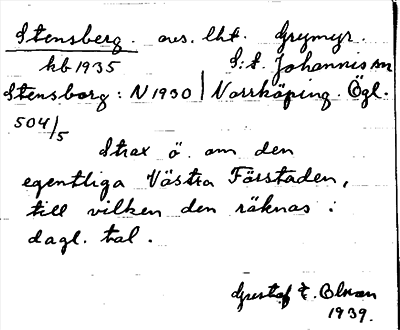 Stensberg. avs. lht. Grymyr.
kb 1935 S:t. Johannis sn
Stensborg: N 1930 | Norrköping. Ögl.
504/5
Strax ö. om den
egentliga Västra Förstaden,
till vilken den räknas i
dagl. tal.
Gustaf E. Olson
1939.